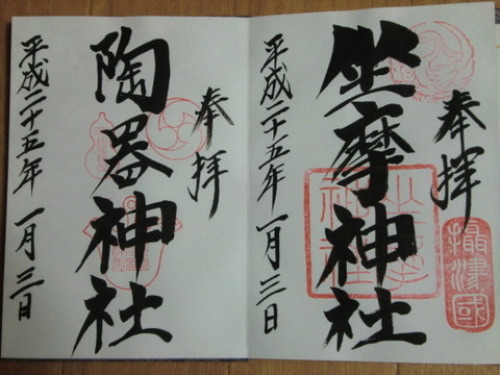 奉拝
坐摩神社
平成二十五年一月三日
攝津國
坐摩神社
奉拝
陶器神社
平成二十五年一月三日